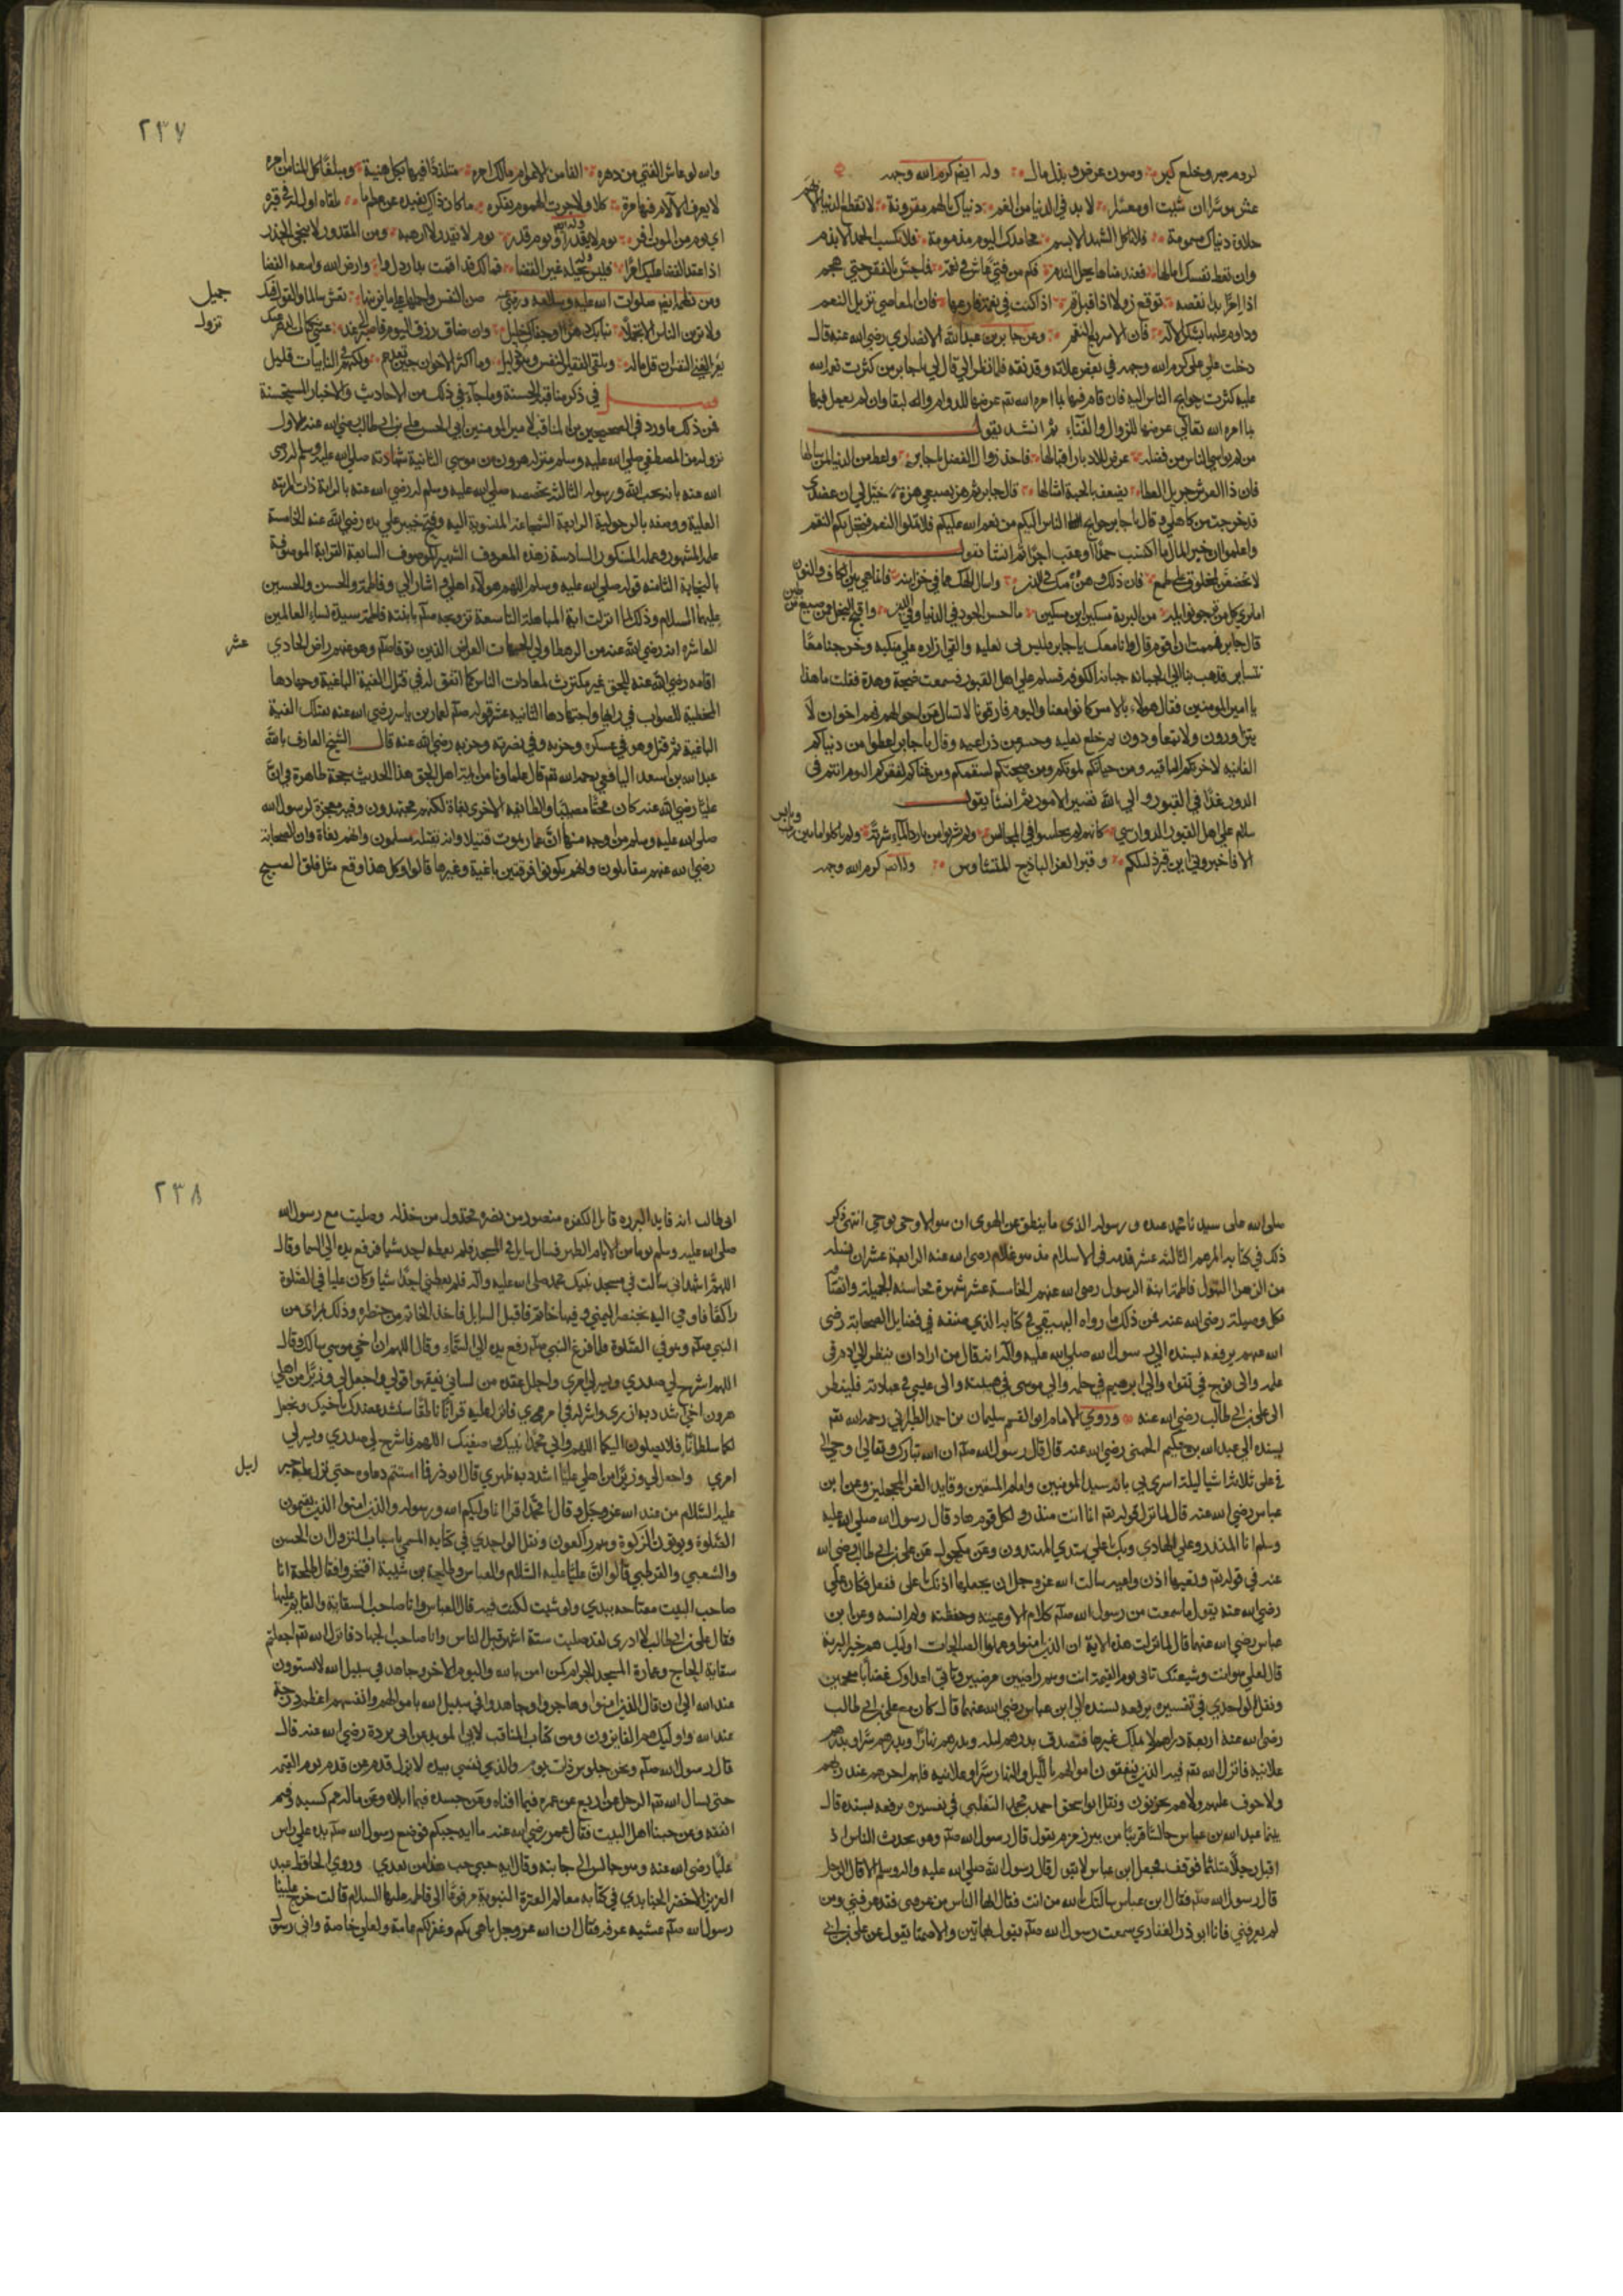 لزوم صبر وخلع كبر وصون عرض وبذل مال وله ايضا كرم الله وجهه
عش موسرا ان شيت او معسرا لا بد في الدنيا من الغم دنياك بالهم مقرونة لا تقطع الدنيا الا بهم
حلاوة دنياك مسمومة فلا تاكل الشهد الا بسم محامدك اليوم مذمومة فلا تكسب الحمد الا بذم
اذا امر بدا نقصه توقع زوالا اذا قيل تم اذا كنت في نعمة فارعها فان المعاصي تزيل النعم
وداوم عليها بشكر الاله فان الاله سريع النقم وعن جابر بن عبد الله الانصاري رضي الله عنه قال
دخلت على علي كرم الله وجهه في بعض علاته وقد نقه فلما نظر الي قال لي يا جابر من كثرت نعم الله
عليه كثرت حوايج الناس اليه فان قام فيها بما امره الله تعم عرضها للدوام والبقا وان لم يعمل فيها
بما امره الله تعالي عرضها للزوال والفناء ثم انشد يقول
فان ذا العرش جزيل العطا يضعف بالحبة امثالها قال جابر ثم هزني بيدي هزة خيل لي ان عضدي
قد خرجت من كاهلي وقال يا جابر حوايج الناس اليكم من نعم الله عليكم فلا تملوا النعم فتحل بكم النقم
واعلموا ان خير المال ما اكتسب حمدا واعقب اجرا ثم انشا يقول
لا تخضعن لمخلوق على طمع فان ذلك وهن منك في الدين واسال الهك مما في خزاينه فانما هي بين الكاف والنون
قال جابر فهممت ان اقوم قال وانا معك يا جابر فلبس نعليه والقى ازاره على منكبيه وخرجنا معا
نتساير فذهب بنا الي الجبانه جبانة الكوفه فسلم علي اهل القبور فسمعت ضجة وهدة فقلت ما هذا
يا امير المومنين فقال هولاء بالامس كانوا معنا واليوم فارقونا لا تسال عن احوالهم فهم اخوان لا
يتزاورون ولا يتعاودون ثم خلع نعليه وحسر عن ذراعيه وقال يا جابر اعطوا من دنياكم
الفانيه لاخرتكم الباقيه ومن حياتكم لموتكم ومن صحتكم لسقمكم ومن غناكم لفقركم اليوم انتم في
الدور غدا في القبور والي الله تصير الامور ثم انشا يقول
سلام على اهل القبور الدوارس كانهم لم يجلسوا في المجالس ولم يشربوا من بارد الماء شربة ولم ياكلوا ما بين رطب ويابس
الا فاخبروني اين قبر ذليلكم وقبر العزيز الباذخ المتشاوس وله ايضا كرم الله وجهه
٢٣٧
والله لو عاش الفتي من دهره الفا من الاعوام مالك امره متلذذا فيها بكل هنية ومبلغا كل المنا من دهره
لا يعرف الالام فيها مرة كلا ولا جرت الهموم بفكره ما كان ذاك يفيده من عظم ما يلقاه اول ليلة في قبره
اي يوم من الموت افر يوم لا يقدر او يوم قدر يوم لا يقدر لا ارهبه ومن المقدور لا ينجي الحذر
اذا عقد القضا عليك امرا فليس يحله غير القضا فمالك قد اقمت بدار ذل وارض الله واسعه الفضا
جميل
نزول
في ذكر مناقبه الحسنة وما جاء في ذلك من الاحاديث والاخبار المستحسنة
فمن ذلك ما ورد في الصحيحين من المناقب لامير المومنين ابي الحسن علي بن ابي طالب رضي الله عنه الاول
نزوله من المصطفي صلي الله عليه وسلم منزلة هرون من موسى الثانية شهادته صلي الله عليه وسلم له رضي
الله عنه بانه يحب الله ورسوله الثالثة تخصيصه صلي الله عليه وسلم له رضي الله عنه بالراية ذات المرتبه
العلية ووصفه بالرجولية الرابعة الشجاعة المنسوبة اليه وفتح خيبر علي يده رضي الله عنه الخامسة
علمه المشهور وعمله المشكور السادسة زهده المعروف الشهير الموصوف السابعة القرابة الموصوفة
بالنجابة الثامنه قوله صلي الله عليه وسلم اللهم هولاء اهلي واشار الى وفاطمة والحسن والحسين
عليهما السلام وذلك لما انزلت اية المباهلة التاسعة تزويجه صلعم بابنته فاطمة سيدة نساء العالمين
عشر
اقامه رضي الله عنه للحق غير مكترث لمعادات الناس كما اتفق له في قتال الفية الباغية وجهادها
المخطية للصواب في رايها واجتهادها الثانية عشر قوله صلعم لعمار بن ياسر رضي الله عنه تقتلك الفية
الباغية ثم قتل وهو في عسكره وحزبه وفي نصرته وحزبه رضي الله عنه قال الشيخ العارف بالله
عبد الله بن اسعد اليافعي رحمه الله تعم قال علماونا من ايمة اهل الحق هذا الحديث حجة ظاهرة في ان
عليا رضي الله عنه كان محقا مصيبا والطايفه الاخرى بغاة لكنهم مجتهدون وفيه معجزة لرسول الله
صلي الله عليه وسلم من اوجه منها ان عمار يموت قتيلا وانه يقتله مسلمون وانهم بغاة وان الصحابة
رضي الله عنهم يتقاتلون وانهم يكونوا فرقتين باغية وغيرها قالوا وكل هذا وقع مثل فلق الصبح
صلى الله على سيدنا محمد عبده ورسوله الذي ما ينطق عن الهوى ان هو الا وحي يوحي انتهى ذكر
ذلك في كتابه المرهم الثالثة عشر قدمه في الاسلام مذ هو غلام رضي الله عنه الرابعة عشر ان نسله
من الزهرا البتول فاطمة ابنة الرسول رضي الله عنهم الخامسة عشر شهرة محاسنه الجميلة واتصافه
بكل فضيلة رضي الله عنه فمن ذلك ما رواه البيهقي في كتابه الذي صنفه في فضايل الصحابة رضى
الله عنهم يرفعه بسنده الى رسول الله صلى الله عليه واله انه قال من اراد ان ينظر الي ادم في
علمه والى نوح في تقواه والي ابرهيم في حلمه والي موسى في هيبته والى عيسى في عبادته فلينظر
الى علي بن ابي طالب رضي الله عنه وروي الامام ابو القسم سليمان بن احمد الطبراني رحمه الله تعم
بسنده الي عبد الله بن حكيم الجهني رضي الله عنه قال قال رسول الله صلعم ان الله تبارك وتعالي اوحي الي
في علي ثلاثة اشيا ليلة اسري بي بانه سيد المومنين وامام المتقين وقايد الغر المحجلين وعن ابن
عباس رضي الله عنه قال لما نزل قوله تعم انما انت منذر ولكل قوم هاد قال رسول الله صلي الله عليه
وسلم انا المنذر وعلي الهادي وبك يا علي يهتدي المهتدون وعن مكحول عن علي بن ابي طالب رضي الله
عنه في قوله تعم وتعيها اذن واعيه سالت الله عز وجل ان يجعلها اذنك يا علي ففعل فكان علي
رضي الله عنه يقول ما سمعت من رسول الله صلعم كلاما الا وعيته وحفظته ولم انسه وعن ابن
عباس رضي الله عنهما قال لما نزلت هذه الاية ان الذين امنوا وعملوا الصالحات اوليك هم خير البرية
قال لعلي هو انت وشيعتك تاتي يوم القيمة انت وهم راضين مرضيين وياتي اعداوك غضابا مقمحين
ونقل الواحدي في تفسيره يرفعه بسنده الي ابن عباس رضي الله عنهما قال كان مع علي بن ابي طالب
رضي الله عنه اربعة دراهم لا يملك غيرها فتصدق بدرهم ليلا وبدرهم نهارا وبدرهم سرا وبدرهم
علانيه فانزل الله تعم فيه الذين ينفقون اموالهم بالليل والنهار سرا وعلانيه فلهم اجرهم عند ربهم
ولا خوف عليهم ولا هم يحزنون ونقل ابو اسحق احمد بن محمد الثعلبي في تفسيره يرفعه بسنده قال
بينما عبد الله بن عباس جالسا قريبا من بير زمزم يقول قال رسول الله صلعم وهو يحدث الناس اذ
اقبل رجل متلثما فوقف فجعل ابن عباس لا يقول قال رسول الله صلي الله عليه واله وسلم الا قال الرجل
قال رسول الله صلعم فقال ابن عباس سالتك بالله من انت فقال ايها الناس من عرفني فقد عرفني ومن
لم يعرفني فانا ابو ذر الغفاري سمعت رسول الله صلعم بهاتين والا صمتا يقول عن علي بن ابي
٢٣٨
ابي طالب انه قايد البرره قاتل الكفره منصور من نصره مخذول من خذله وصليت مع رسول الله
صلي الله عليه وسلم يوما من الايام الظهر فسال سايل في المسجد فلم يعطه احد شيا فرفع يده الي السما وقال
اللهم اشهد اني سالت في مسجد نبيك محمد صلى الله عليه واله فلم يعطني احد شيا وكان عليا في الصلوة
راكعا فاومي اليه بخنصره اليمني وفيها خاتم فاقبل السايل فاخذ الخاتم من خنصره وذلك بمراى من
النبي صلعم وهو في الصلوة فلما فرغ النبي صلعم رفع يده الي السماء وقال اللهم ان اخي موسى سالك وقال
اللهم اشرح لي صدري ويسر لي امري واحلل عقدة من لساني يفقهوا قولي واجعل لي وزيرا من اهلي
هرون اخي اشدد به ازري واشركه في امري فانزل عليه قرانا ناطقا سنشد عضدك باخيك ونجعل
لكما سلطانا فلا يصلون اليكما اللهم واني محمد نبيك وصفيك اللهم فاشرح لي صدري ويسر لي
امري واجعل لي وزيرا من اهلي عليا اشدد به ظهري قال ابو ذر فما استتم دعاوه حتي نزل عليه جبر
ايل
عليه السلام من عند الله عز وجل وقال يا محمد اقرا انما وليكم الله ورسوله والذين امنوا الذين يقيمون
الصلوة ويوتون الزكوة وهم راكعون ونقل الواحدي في كتابه المسمي باسباب النزول ان الحسن
والشعبي والقرطبي قالوا ان عليا عليه السلام والعباس وطلحة بن شيبة افتخروا فقال طلحة انا
صاحب البيت مفتاحه بيدي ولو شيت لكنت فيه قال العباس وانا صاحب السقاية والقايم عليها
فقال علي بن ابي طالب لا ادري لقد صليت ستة اشهر قبل الناس وانا صاحب الجهاد فانزل الله تعم اجعلتم
سقاية الحاج وعمارة المسجد الحرام كمن امن بالله واليوم الاخر وجاهد في سبيل الله لا يستوون
عند الله الي ان قال الذين امنوا وهاجروا وجاهدوا في سبيل الله باموالهم وانفسهم اعظم درجة
عند الله واوليك هم الفايزون ومن كتاب المناقب لابي المويد عن ابي بردة رضي الله عنه قال
قال رسول الله صلعم ونحن جلوس ذات يوم والذي نفسي بيده لا يزول قدم عن قدم يوم القيمه
حتى يسال الله تعم الرجل عن اربع عن عمره فيما افناه وعن جسده فيما ابلاه وعن ماله مم كسبه وفيم
انفقه وعن حبنا اهل البيت فقال عمر رضي الله عنه ما اية حبكم فوضع رسول الله صلعم يده علي راس
عليا رضي الله عنه وهو جالس الى جانبه وقال اية حبي حب هذا من بعدي وروي الحافظ عبد
العزيز الاخضر الجنابدي في كتابه معالم العترة النبوية مرفوعا الى فاطمه عليها السلام قالت خرج علينا
رسول الله صلعم عشيه عرفه فقال ان الله عز وجل باهى بكم وغفر لكم عامة ولعلي خاصة واني رسول